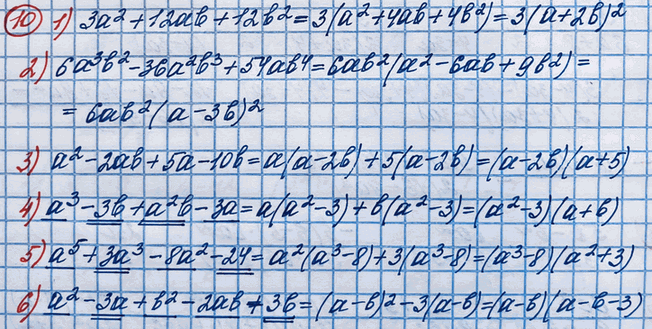 10 1) 3a² + 12ab + 12b² = 3(a² + 4ab + 4b²) = 3(a + 2b)²
2) 6a³b² - 36a²b³ + 54ab⁴ = 6ab²(a² - 6ab + 9b²) =
= 6ab²(a - 3b)²
3) a² - 2ab + 5a - 10b = a(a - 2b) + 5(a - 2b) = (a - 2b)(a + 5)
4) a³ - 3b + a²b - 3a = a(a² - 3) + b(a² - 3) = (a² - 3)(a + b)
5) a⁵ + 3a³ - 8a² - 24 = a²(a³ - 8) + 3(a³ - 8) = (a³ - 8)(a² + 3)
6) a² - 3a + b² - 2ab + 3b = (a - b)² - 3(a - b) = (a - b)(a - b - 3)